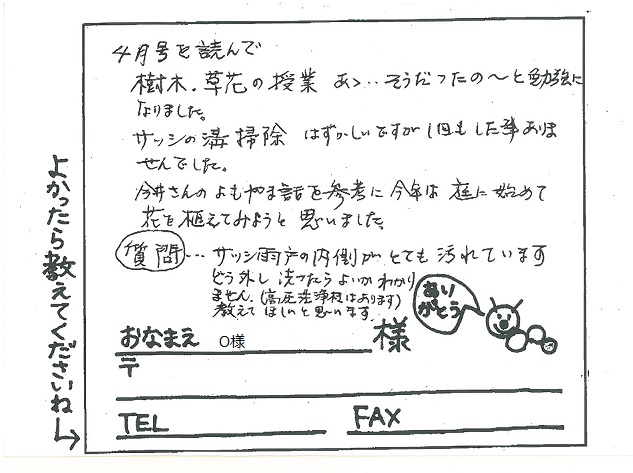 4月号を読んで
樹木.草花の授業 あゝ…そうだったの〜と勉強に
なりました。
サッシの溝掃除 はずかしいですが1回もした事ありま
せんでした。
今井さんのよもやま話を参考に今年は庭に始めて
花を植えてみようと思いました。
質問…サッシ雨戸の内側がとても汚れています
どう外し洗ったらよいかわかり
ません。(高圧洗浄機はあります)
教えてほしいと思います。
ありがとう
おなまえ O様 様
〒
TEL FAX
よかったら教えてくださいね